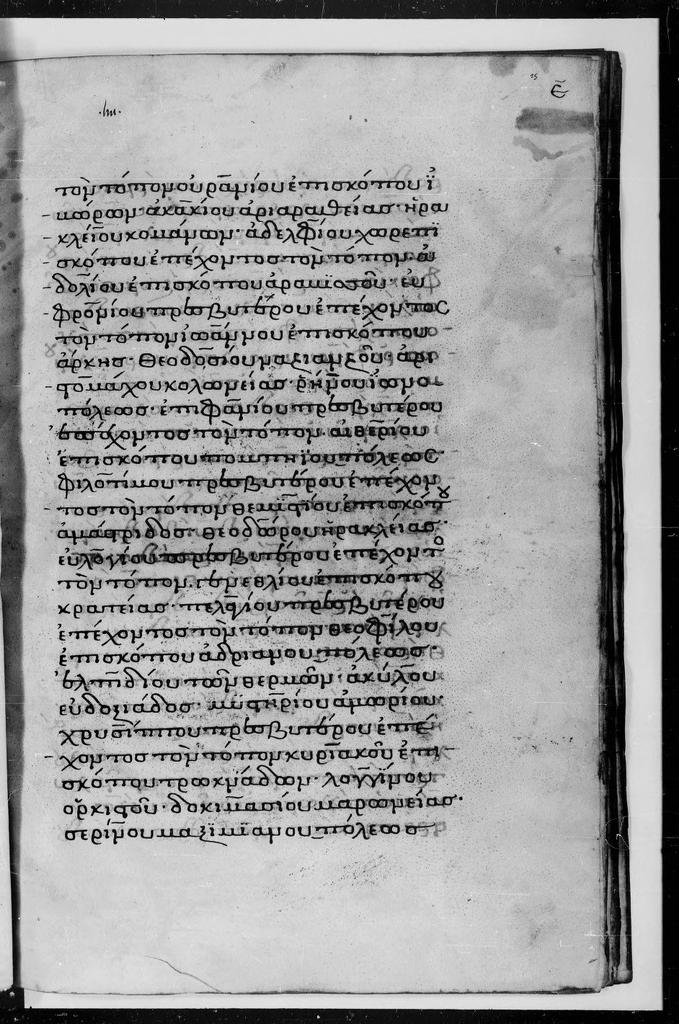 τὸν τόπον οὐρανίου ἐπισκόπου ἰ
μώρων· ἀκακίου ἀριαραθείας· ἡρα
κλείου κομάνων· ἀδελφίου χωρεπι
σκόπου ἐπέχοντος τὸν τόπον ἀ
δολίου ἐπισκόπου ἀραμισσοῦ· εὐ
φρονίου πρεσβυτέρου ἐπέχοντος
τὸν τόπον ἰωάννου ἐπισκόπου
ἄρκης· θεοδοσίου μαξιανξοῦ· ἀρι
στομάχου κολωνείας· ῥήνου ἰωνο
πόλεως· ἐπιφανίου πρεσβυτέρου
ἐπέχοντος τὸν τόπον αἰθερίου
ἐπισκόπου πομπηϊουπόλεως
φιλοτίμου πρεσβυτέρου ἐπέχον
τος τὸν τόπον θεμιστίου ἐπισκόπου
ἀμάστριδος· θεοδώρου ἡρακλείας·
εὐλογίου πρεσβυτέρου ἐπέχοντο
τὸν τόπον γενεθλίου ἐπισκόπου
κρατείας· πελαγίου πρεσβυτέρου
ἐπέχοντος τὸν τόπον θεοφίλου
ἐπισκόπου ἀδριανουπόλεως·
ἐλπιδίου τῶν θερμῶν· ἀκύλου
εὐδοξιάδος· μυστηρίου ἀμωρίου·
χρυσίππου πρεσβυτέρου ἐπέ
χοντος τὸν τόπον κυριακοῦ ἐπι
σκόπου τρωκνάδων· λογγίνου
ὀρκιστοῦ· δοκιμασίου μαρωνείας·
σερίνου μαξιμιανουπόλεως